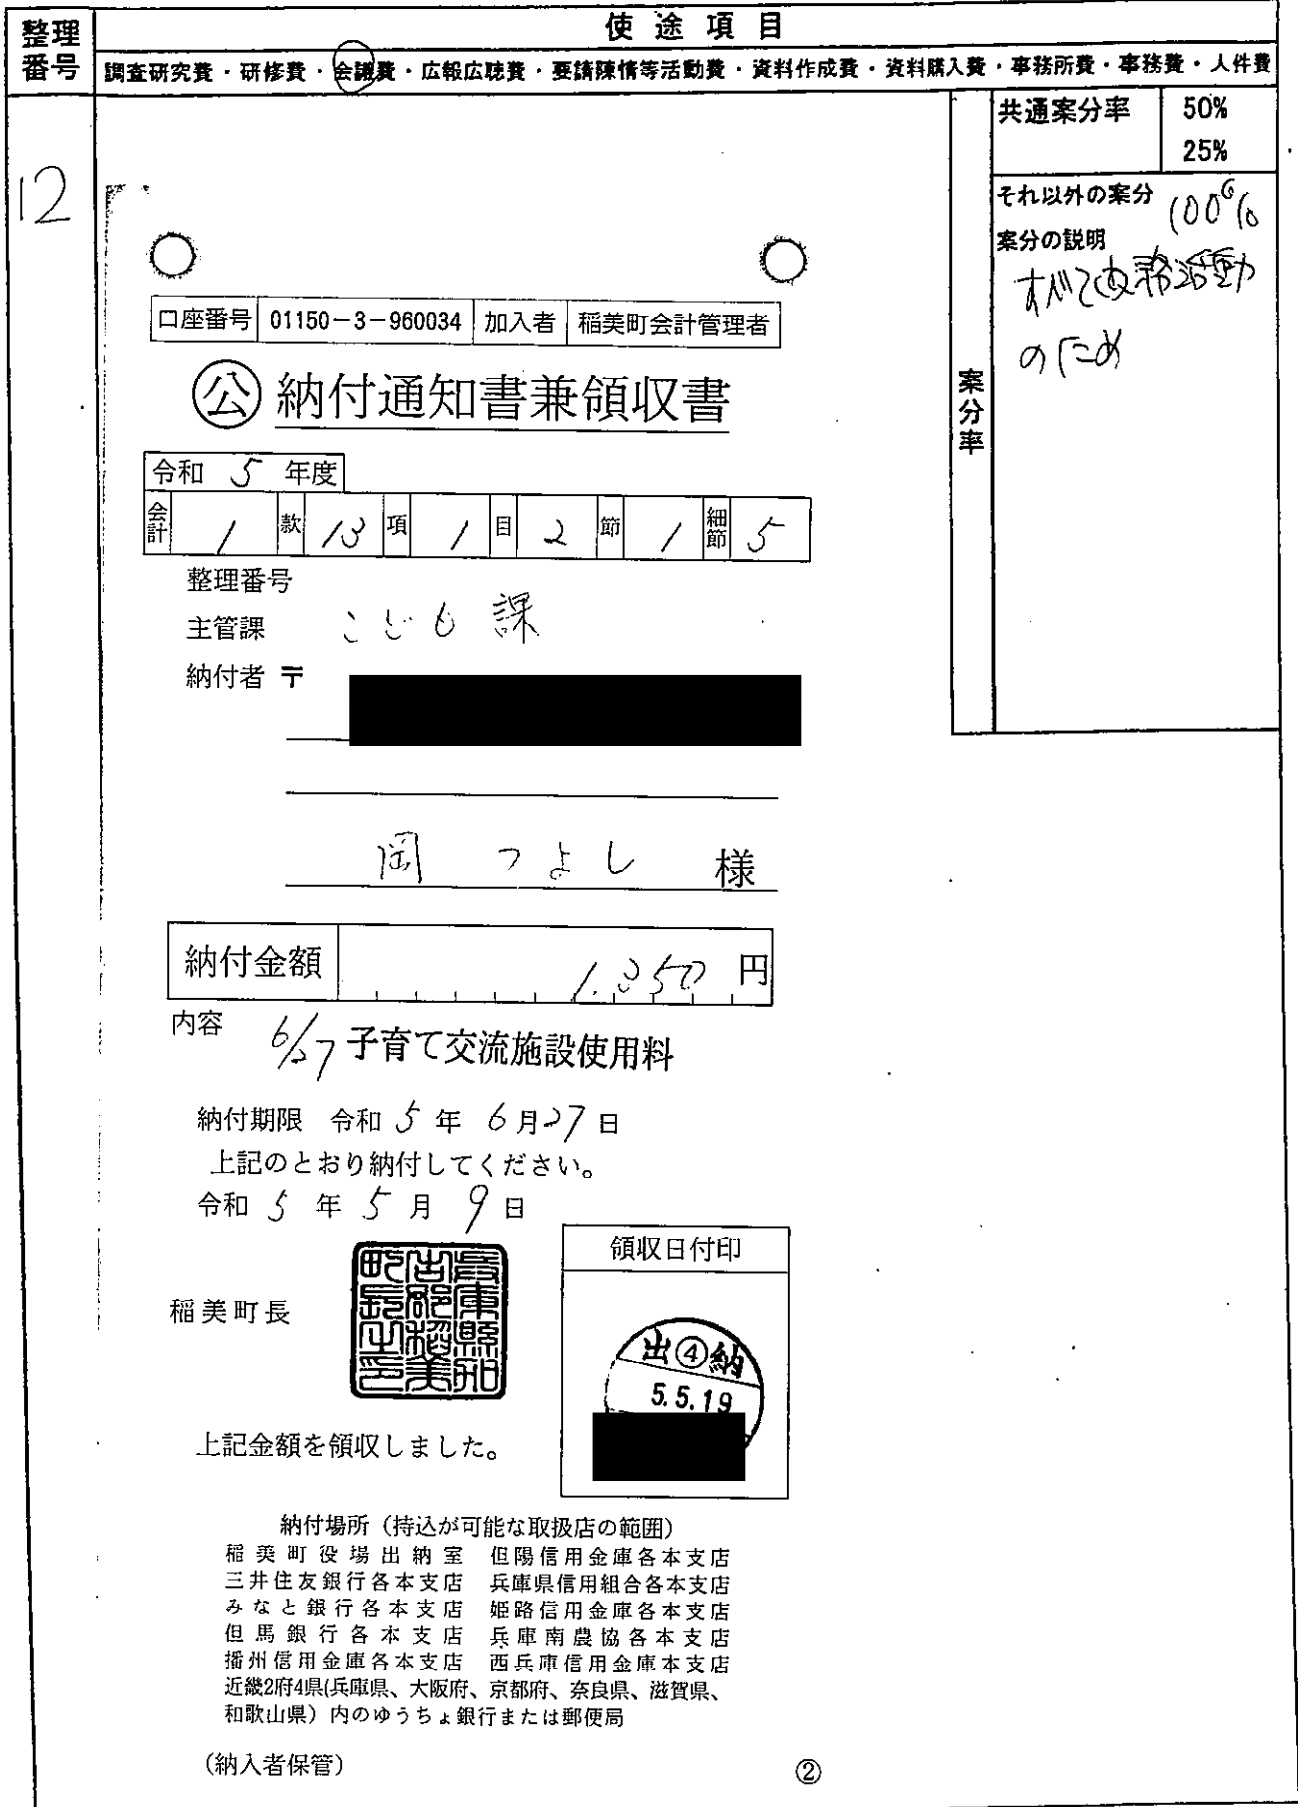 整理番号
使途項目
調査研究費・研修費・会議費・広報広聴費・要請陳情等活動費・資料作成費・資料購入費・事務所費・事務費・人件費
12
案分率
共通案分率 50%
25%
それ以外の案分 100%
案分の説明
すべて政務活動
のため
口座番号 01150-3-960034 加入者 稲美町会計管理者
公 納付通知書兼領収書
令和 5 年度
会計 1 款 13 項 1 目 2 節 1 細節 5
整理番号
主管課 こども課
納付者 〒
岡 つよし 様
納付金額 1,350 円
内容 6/27 子育て交流施設使用料
納付期限 令和 5 年 6 月 27 日
上記のとおり納付してください。
令和 5 年 5 月 9 日
稲美町長
兵庫縣加古郡稲美町長之印
領収日付印
出④納
5.5.19
上記金額を領収しました。
納付場所（持込が可能な取扱店の範囲）
稲美町役場出納室 但陽信用金庫各本支店
三井住友銀行各本支店 兵庫県信用組合各本支店
みなと銀行各本支店 姫路信用金庫各本支店
但馬銀行各本支店 兵庫南農協各本支店
播州信用金庫各本支店 西兵庫信用金庫本支店
近畿2府4県(兵庫県、大阪府、京都府、奈良県、滋賀県、
和歌山県）内のゆうちょ銀行または郵便局
（納入者保管）
②